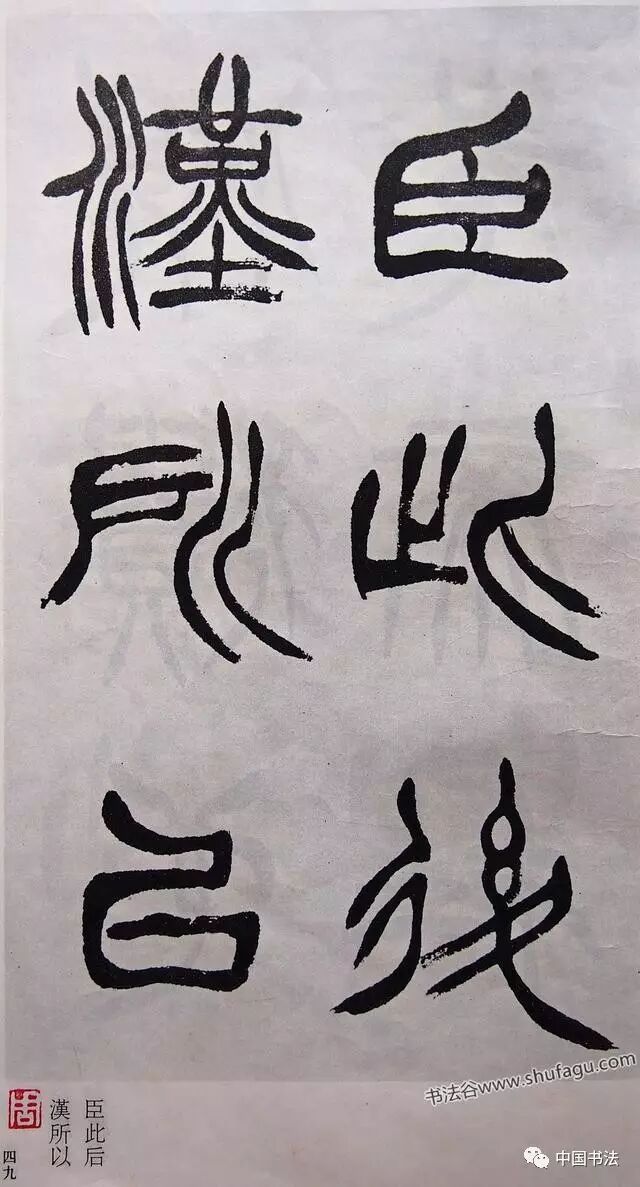 臣此後
漢所㠯
臣此后
漢所以
四九
书法谷www.shufagu.com
中国书法